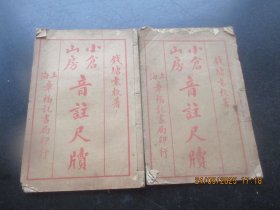 錢塘袁枚著
小倉山房
音註尺牘
上海章福記書局印行
錢塘袁枚著
小倉山房
音註尺牘
上海章福記書局印行